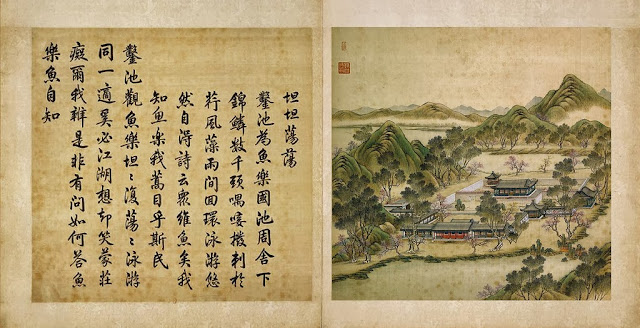 坦坦蕩蕩
鑿池為魚樂國池周舍下
錦鱗數千頭喁唼撥剌於
荇風藻雨間回環泳游悠
然自得詩云眾維魚矣我
知魚樂我蒿目乎斯民
鑿池觀魚樂坦〻復蕩〻泳游
同一適奚必江湖想却笑蒙莊
癡爾我辯是非有問如何答魚
樂魚自知